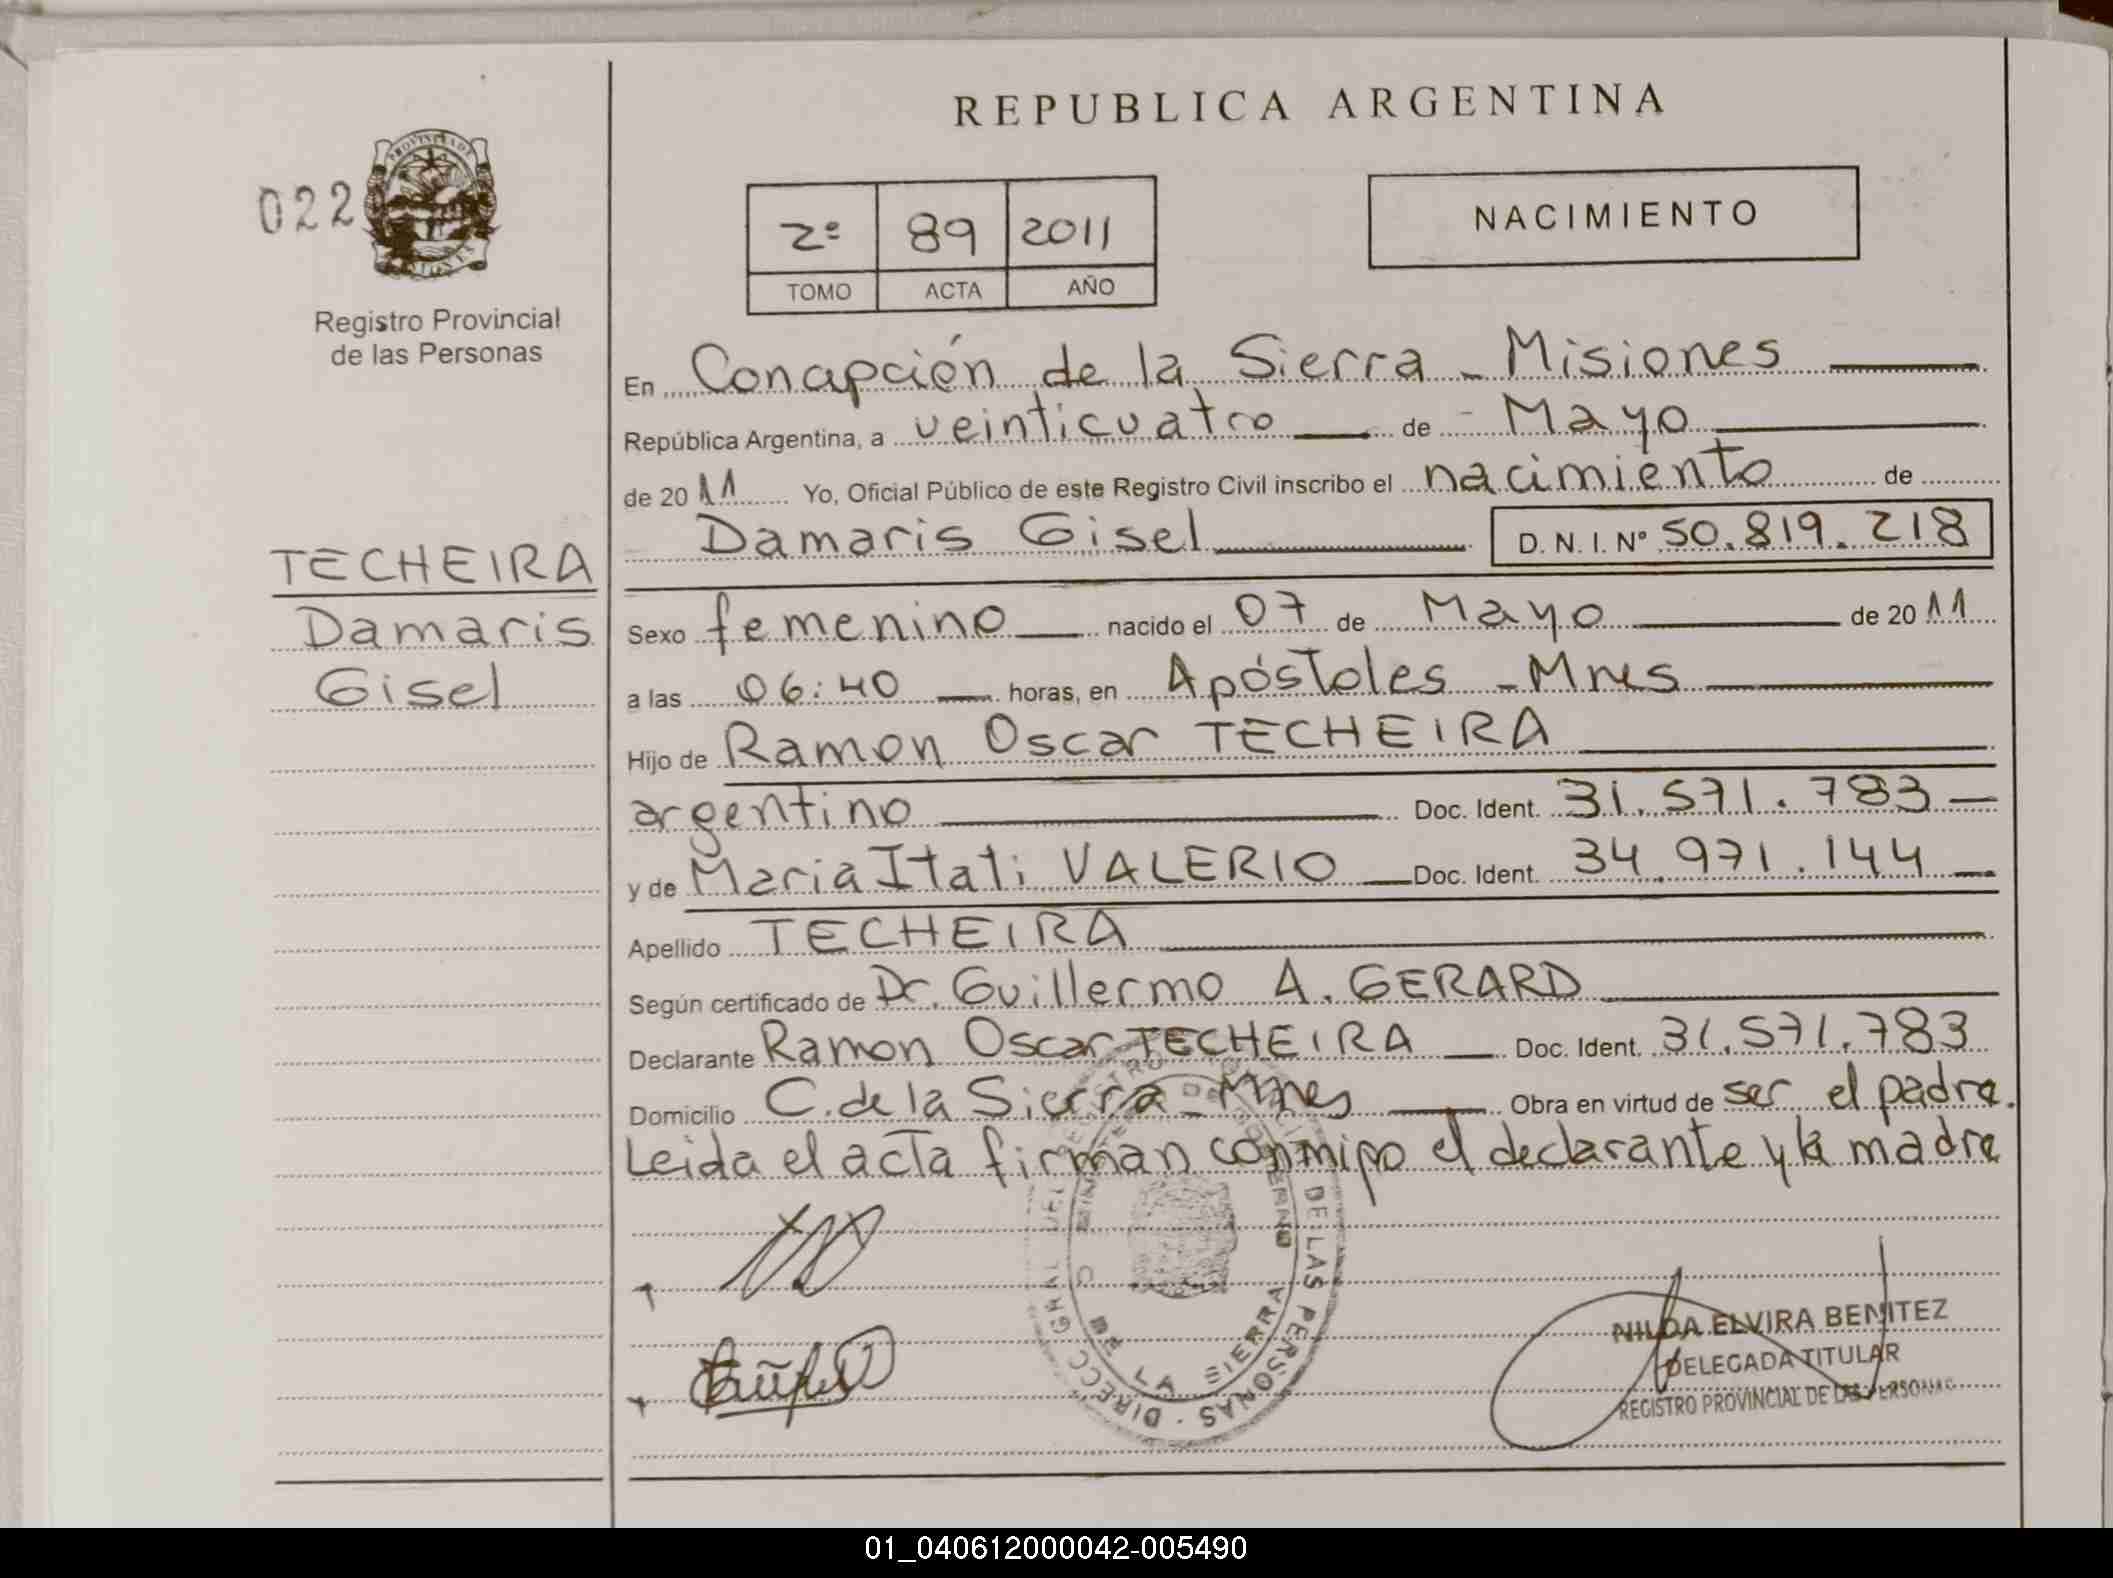 REPUBLICA ARGENTINA
022
PROVINCIA DE MISIONES
Registro Provincial
de las Personas
2º 89 2011
TOMO ACTA AÑO
NACIMIENTO
En Concepción de la Sierra - Misiones
República Argentina, a veinticuatro de - Mayo
de 2011 Yo, Oficial Público de este Registro Civil inscribo el nacimiento de
Damaris Gisel D. N. I. Nº 50.819.218
TECHEIRA
Damaris
Gisel
Sexo femenino nacido el 07 de Mayo de 2011
a las 06:40 horas, en Apóstoles - Mnes
Hijo de Ramon Oscar TECHEIRA
argentino Doc. Ident. 31.571.783
y de Maria Itati VALERIO Doc. Ident. 34.971.144
Apellido TECHEIRA
Según certificado de Dr. Guillermo A. GERARD
Declarante Ramon Oscar TECHEIRA Doc. Ident. 31.571.783
Domicilio C. de la Sierra - Mnes Obra en virtud de ser el padre.
Leida el acta firman conmigo el declarante y la madre
DE LAS PERSONAS - DIRECC GRAL DEL
C DE LA SIERRA
NILDA ELVIRA BENITEZ
DELEGADA TITULAR
REGISTRO PROVINCIAL DE LAS PERSONAS
01_040612000042-005490